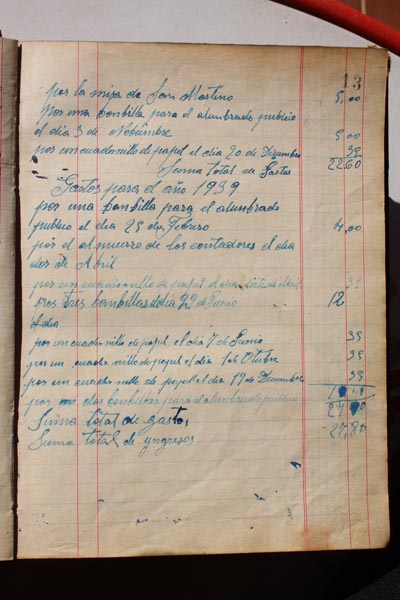 13
por la misa de San Martino 5,00
por una banbilla para el alumbrado publico
el dia 3 de Nobiembre 5 00
por un cuadernillo de papel el dia 20 de Diziembre
Suma total de Gastos 22,60
Gastos para el año 1939
por una banbilla para el alumbrado
publico el dia 25 de Febrero 4,00
por el almuerzo de los contadores el dia
dos de Abril
por un cuadernillo de papel el dia
por tres banbillas el dia 22 de Junio 12
el dia
por un cuadernillo de papel el dia 7 de Junio 35
por un cuadro nillo de papel el dia 1 de Otubre 35
por un cuadro nillo de papel el dia 17 de Diziembre 35
por dos banbillas para el alumbrado publico
Suma total de gastos
Suma total de yngresos 27,80